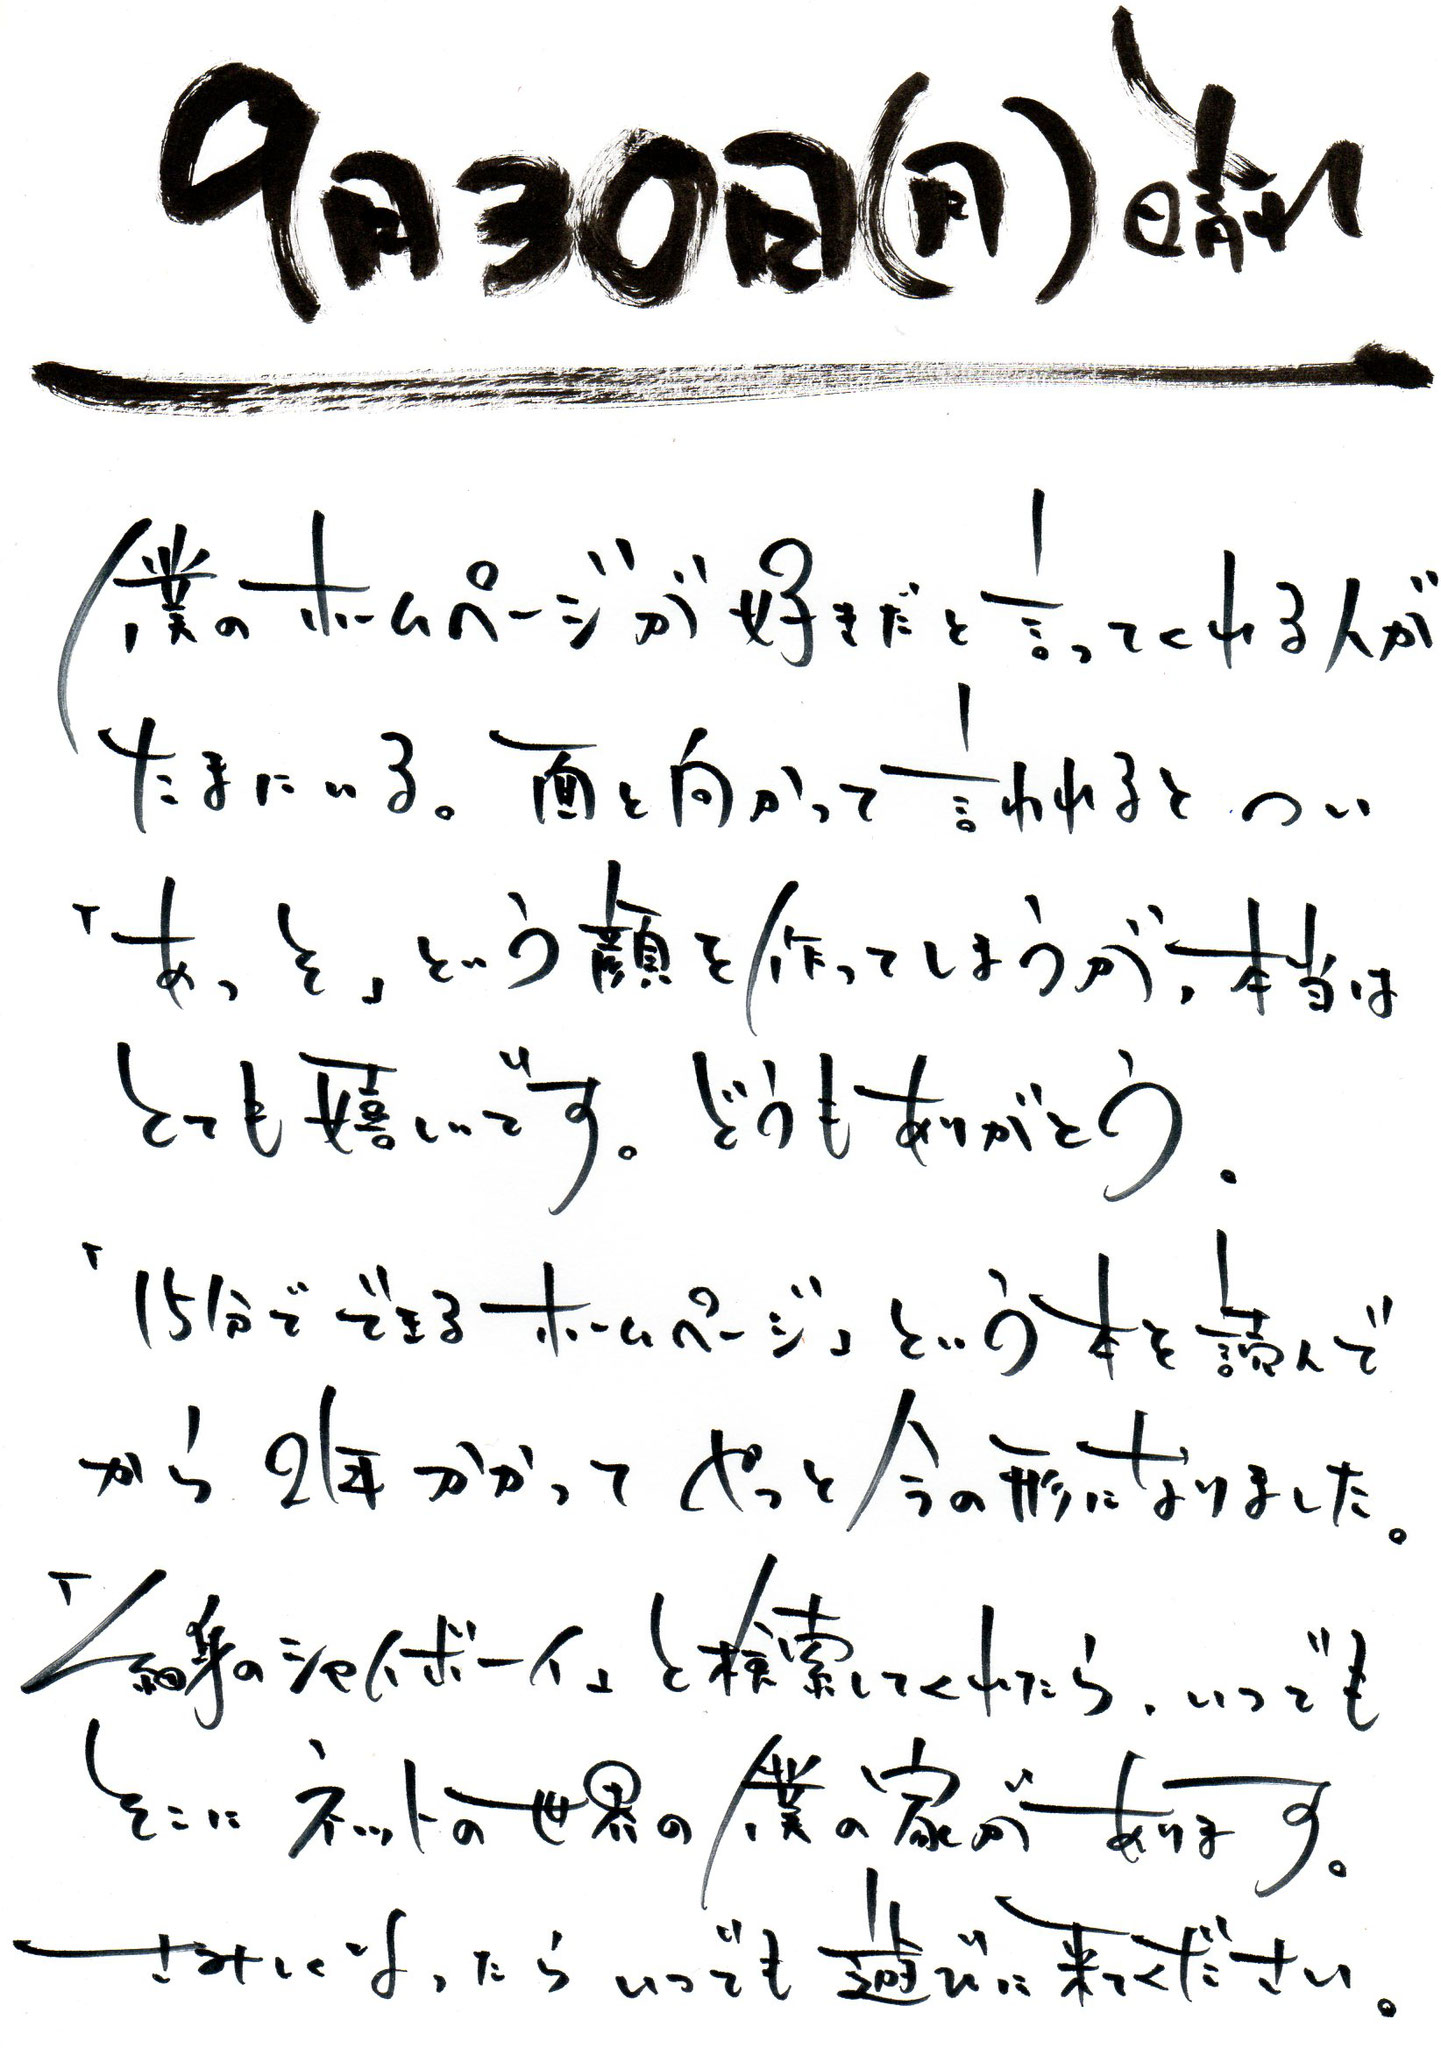 9月30日(月)晴れ
僕のホームページが好きだと言ってくれる人が
たまにいる。面と向かって言われるとつい
「あっそ」という顔を作ってしまうが、本当は
とても嬉しいです。どうもありがとう。
「15分でできるホームページ」という本を読んで
から2年かかってやっと今の形になりました。
「細身のシャイボーイ」と検索してくれたら、いつでも
そこにネットの世界の僕の家があります。
さみしくなったらいつでも遊びに来てください。